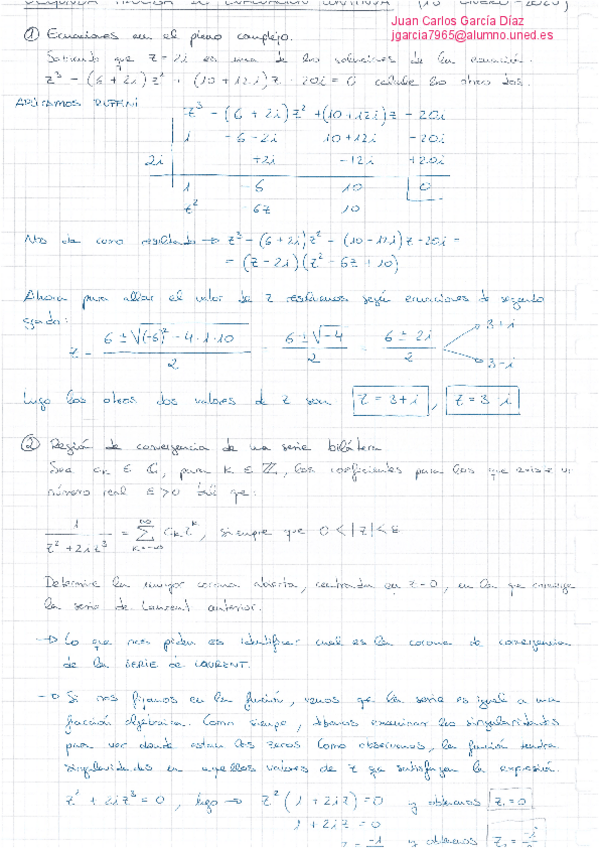 SEGUNDA PRUEBA DE EVALUACIÓN CONTINUA (10 ENERO - 2020)
Juan Carlos García Díaz
jgarcia7965@alumno.uned.es
① Ecuaciones en el plano complejo.
Sabiendo que z = 2i es una de las soluciones de la ecuación
z³ - (6 + 2i)z² + (10 + 12i)z - 20i = 0 calcule las otras dos.
APLICAMOS RUFFINI
z³ - (6 + 2i)z² + (10 + 12i)z - 20i
1 -6-2i 10+12i -20i
2i +2i -12i +20i
1 -6 10 0
z² -6z 10
Nos da como resultado → z³ - (6+2i)z² - (10-12i)z - 20i =
= (z - 2i)(z² - 6z + 10)
Ahora para allar el valor de z resolvemos según ecuaciones de segundo
grado:
z = (6 ± √((-6)² - 4·1·10))/2 = (6 ± √-4)/2 = (6 ± 2i)/2 → 3+i
→ 3-i
luego los otros dos valores de z son z = 3+i , z = 3-i
② Región de convergencia de una serie bilátera
Sea cₖ ∈ ℂ, para k ∈ ℤ, los coeficientes para los que existe un
número real ε>0 tal que:
1/(z² + 2iz³) = ∑ₖ₌₋∞^∞ cₖzᵏ, siempre que 0 < |z| < ε
Determine la mayor corona abierta, centrada en z=0, en la que converge
la serie de Laurent anterior.
→ Lo que nos piden es identificar cual es la corona de convergencia
de la SERIE DE LAURENT.
→ Si nos fijamos en la función, vemos que la serie es igual a una
fracción algebraica. Como siempre, debemos examinar las singularidades
para ver donde estan los zeros. Como observamos, la función tendra
singularidades en aquellos valores de z que satisfagan la expresión
z² + 2iz³ = 0 , luego → z²(1 + 2iz) = 0 y obtenemos z₁ = 0
1 + 2iz = 0
z = -1 y obtenemos z₂ = -i